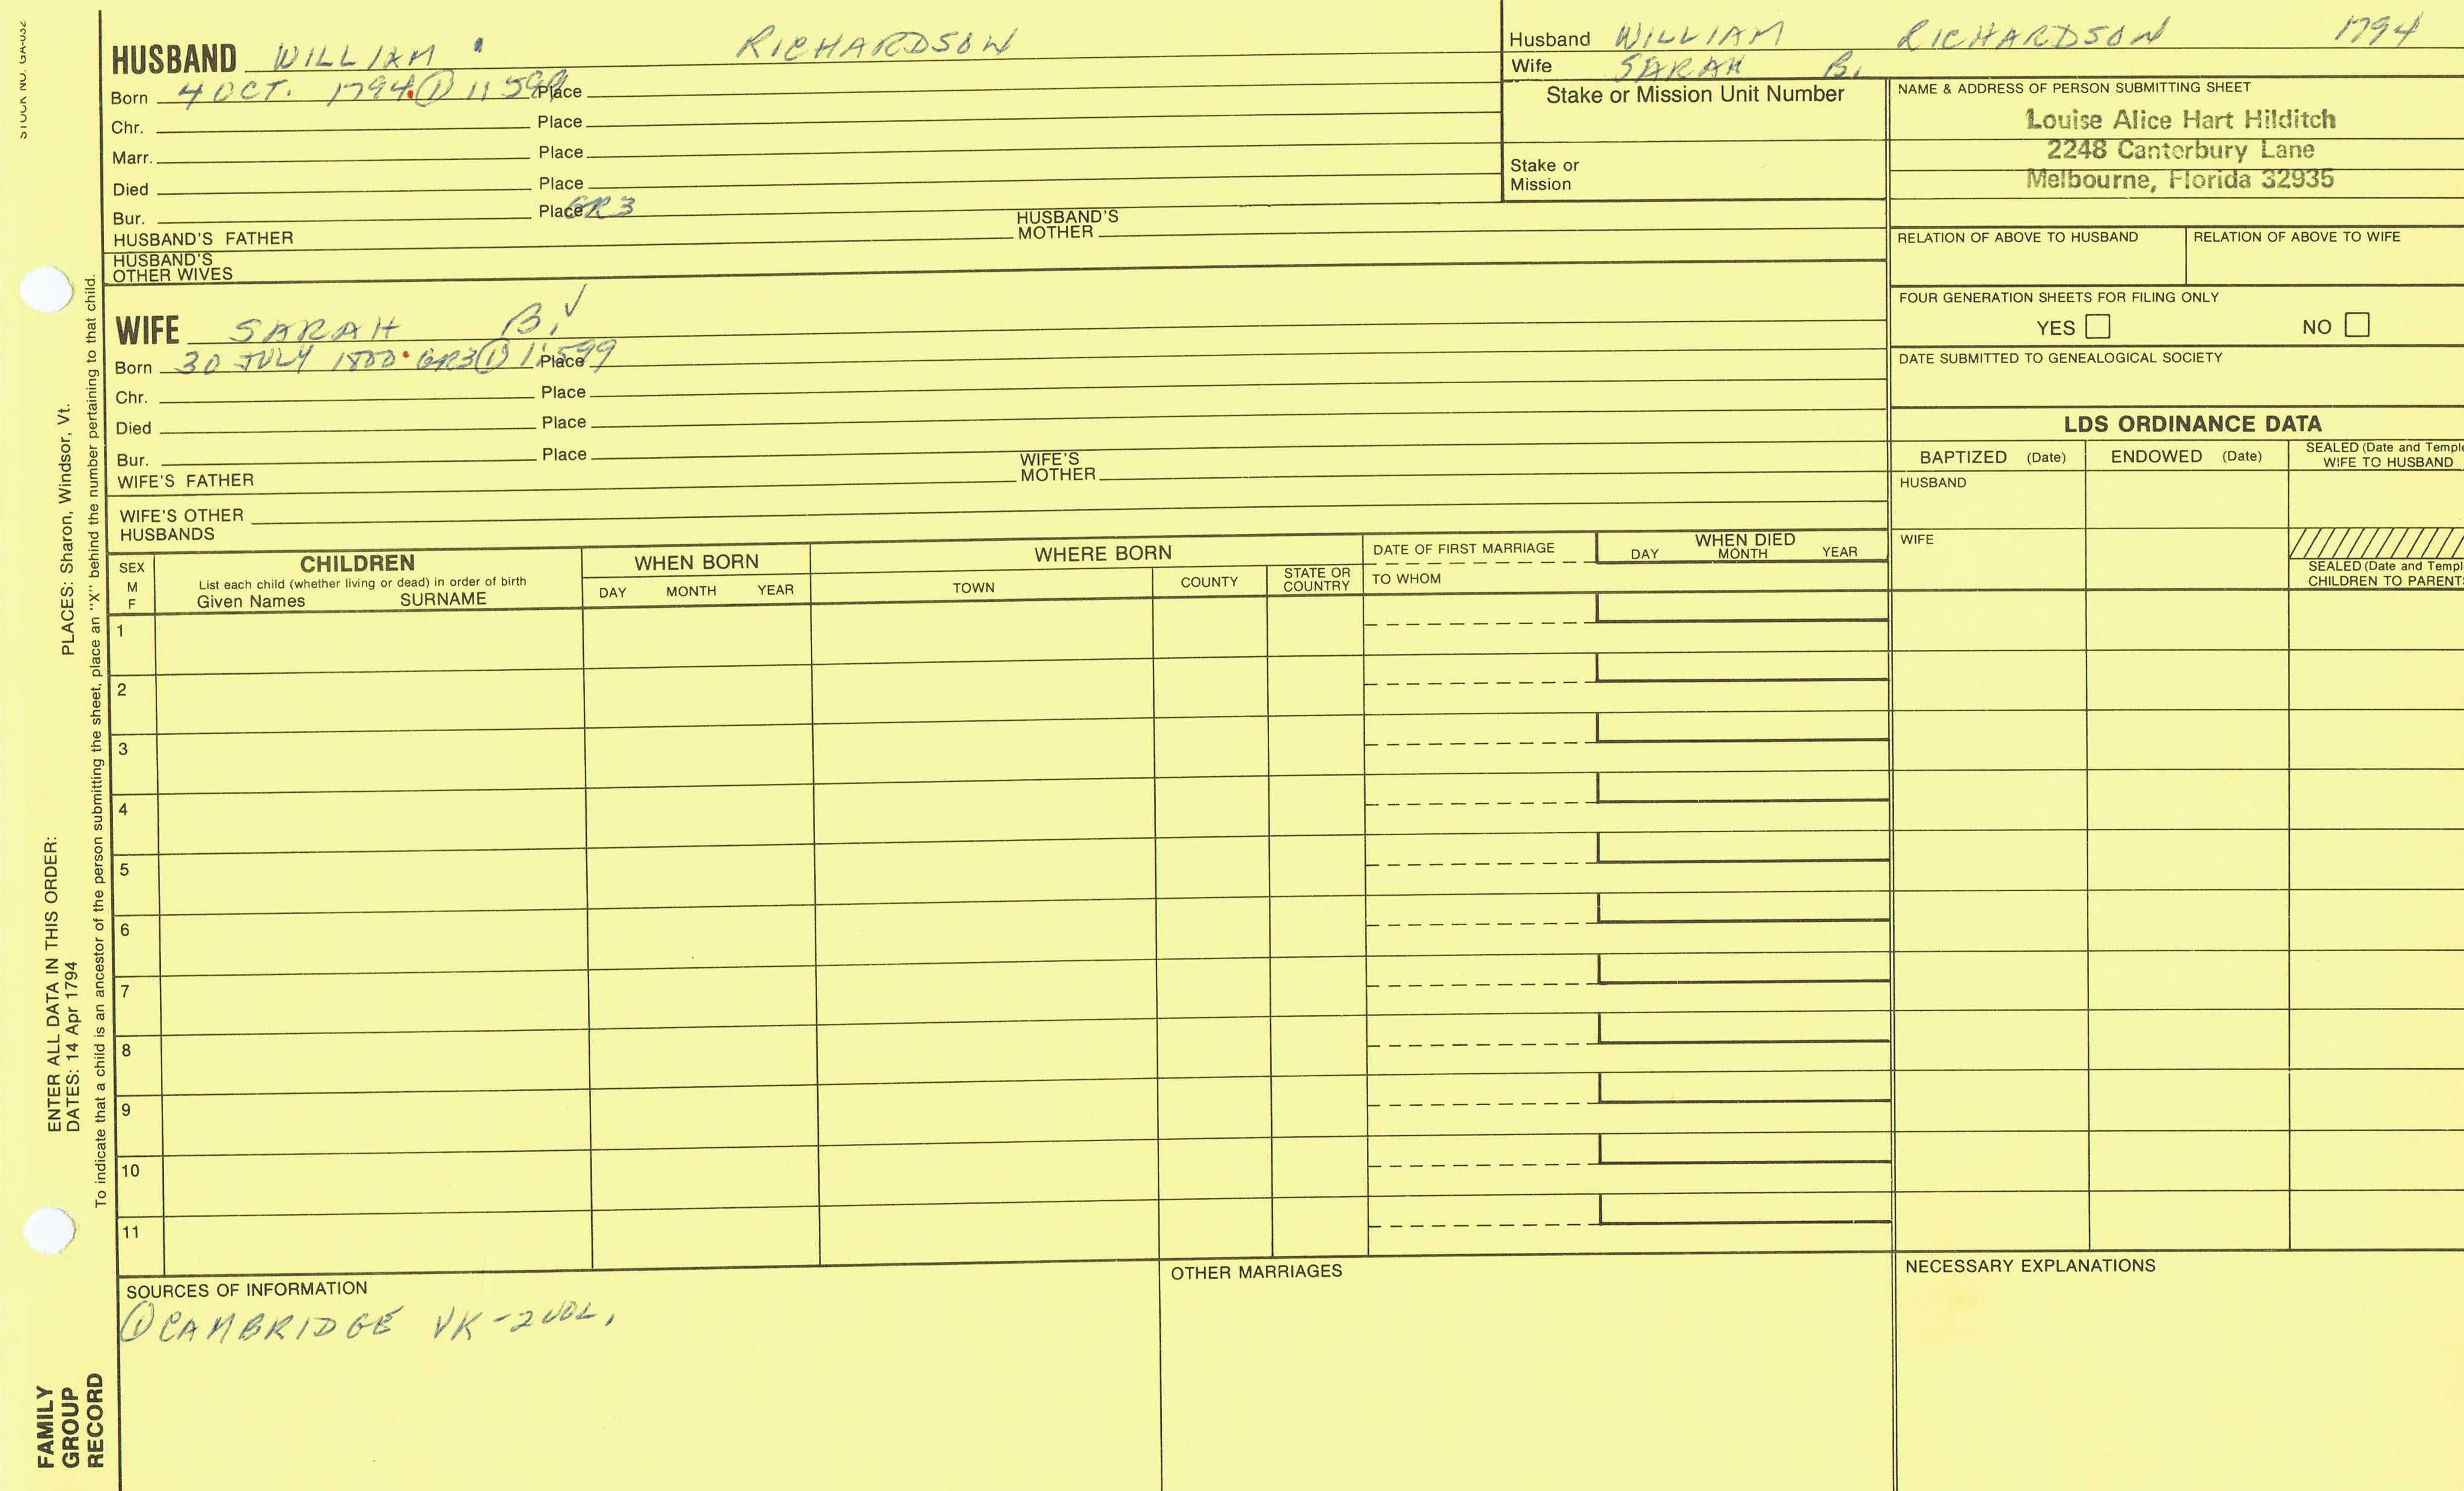 STOCK NO. GA-032
HUSBAND WILLIAM RICHARDSON
Born 4 OCT. 1794 ① 1:599 Place
Chr. Place
Marr. Place
Died Place
Bur. Place GR3
HUSBAND'S FATHER HUSBAND'S MOTHER
HUSBAND'S OTHER WIVES
WIFE SARAH B. ✓
Born 30 JULY 1800 GR3 ① 1:599 Place
Chr. Place
Died Place
Bur. Place
WIFE'S FATHER WIFE'S MOTHER
WIFE'S OTHER HUSBANDS
Husband WILLIAM RICHARDSON 1794
Wife SARAH B.
Stake or Mission Unit Number
Stake or Mission
NAME & ADDRESS OF PERSON SUBMITTING SHEET
Louise Alice Hart Hilditch
2248 Canterbury Lane
Melbourne, Florida 32935
RELATION OF ABOVE TO HUSBAND RELATION OF ABOVE TO WIFE
FOUR GENERATION SHEETS FOR FILING ONLY
YES NO
DATE SUBMITTED TO GENEALOGICAL SOCIETY
LDS ORDINANCE DATA
BAPTIZED (Date) ENDOWED (Date) SEALED (Date and Temple
WIFE TO HUSBAND
HUSBAND
WIFE
SEALED (Date and Templ
CHILDREN TO PARENT
SEX M F
CHILDREN
List each child (whether living or dead) in order of birth
Given Names SURNAME
WHEN BORN
DAY MONTH YEAR
WHERE BORN
TOWN COUNTY STATE OR COUNTRY
DATE OF FIRST MARRIAGE
TO WHOM
WHEN DIED
DAY MONTH YEAR
1
2
3
4
5
6
7
8
9
10
11
SOURCES OF INFORMATION
① CAMBRIDGE VR-2 VOL.
OTHER MARRIAGES
NECESSARY EXPLANATIONS
ENTER ALL DATA IN THIS ORDER:
DATES: 14 Apr 1794 PLACES: Sharon, Windsor, Vt.
To indicate that a child is an ancestor of the person submitting the sheet, place an "X" behind the number pertaining to that child.
FAMILY
GROUP
RECORD